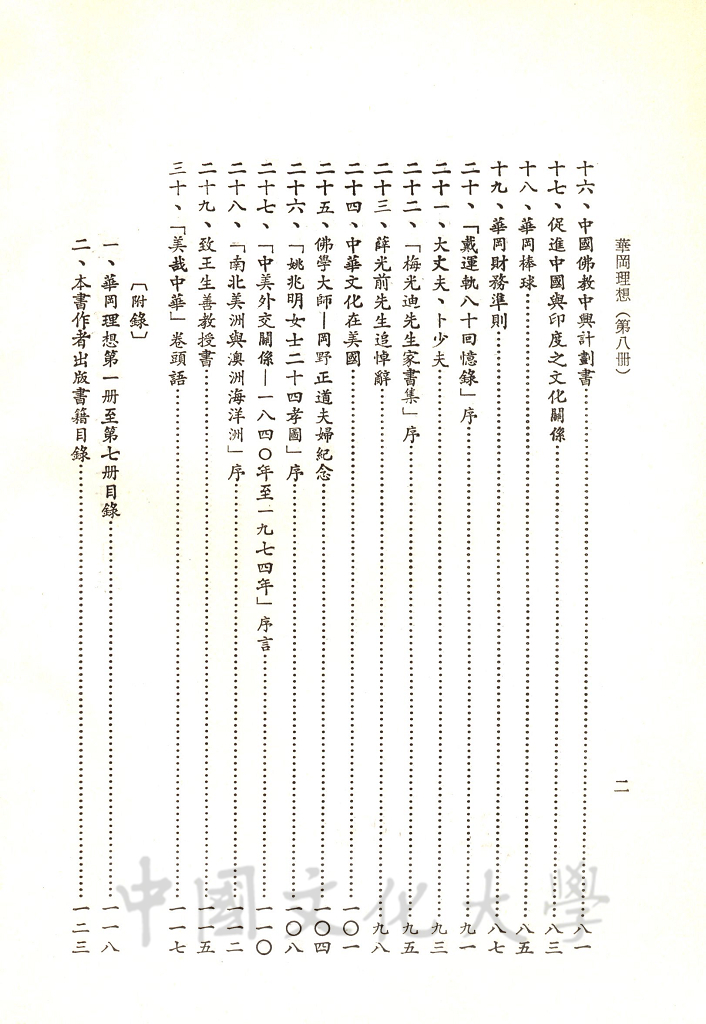 華岡理想（第八册）
二
十六、中國佛教中興計劃書…………八一
十七、促進中國與印度之文化關係…………八三
十八、華岡棒球…………八五
十九、華岡財務準則…………八七
二十、「戴運軌八十回憶錄」序…………九一
二十一、大丈夫、卜少夫…………九三
二十二、「梅光迪先生家書集」序…………九五
二十三、薛光前先生追悼辭…………九八
二十四、中華文化在美國…………一〇一
二十五、佛學大師—岡野正道夫婦紀念…………一〇四
二十六、「姚兆明女士二十四孝圖」序…………一〇八
二十七、「中美外交關係—一八四〇年至一九七四年」序言…………一一〇
二十八、「南北美洲與澳洲海洋洲」序…………一一二
二十九、致王生善教授書…………一一五
三十、「美哉中華」卷頭語…………一一七
〔附錄〕
一、華岡理想第一册至第七册目錄…………一一八
二、本書作者出版書籍目錄…………一二三
中國文化大學